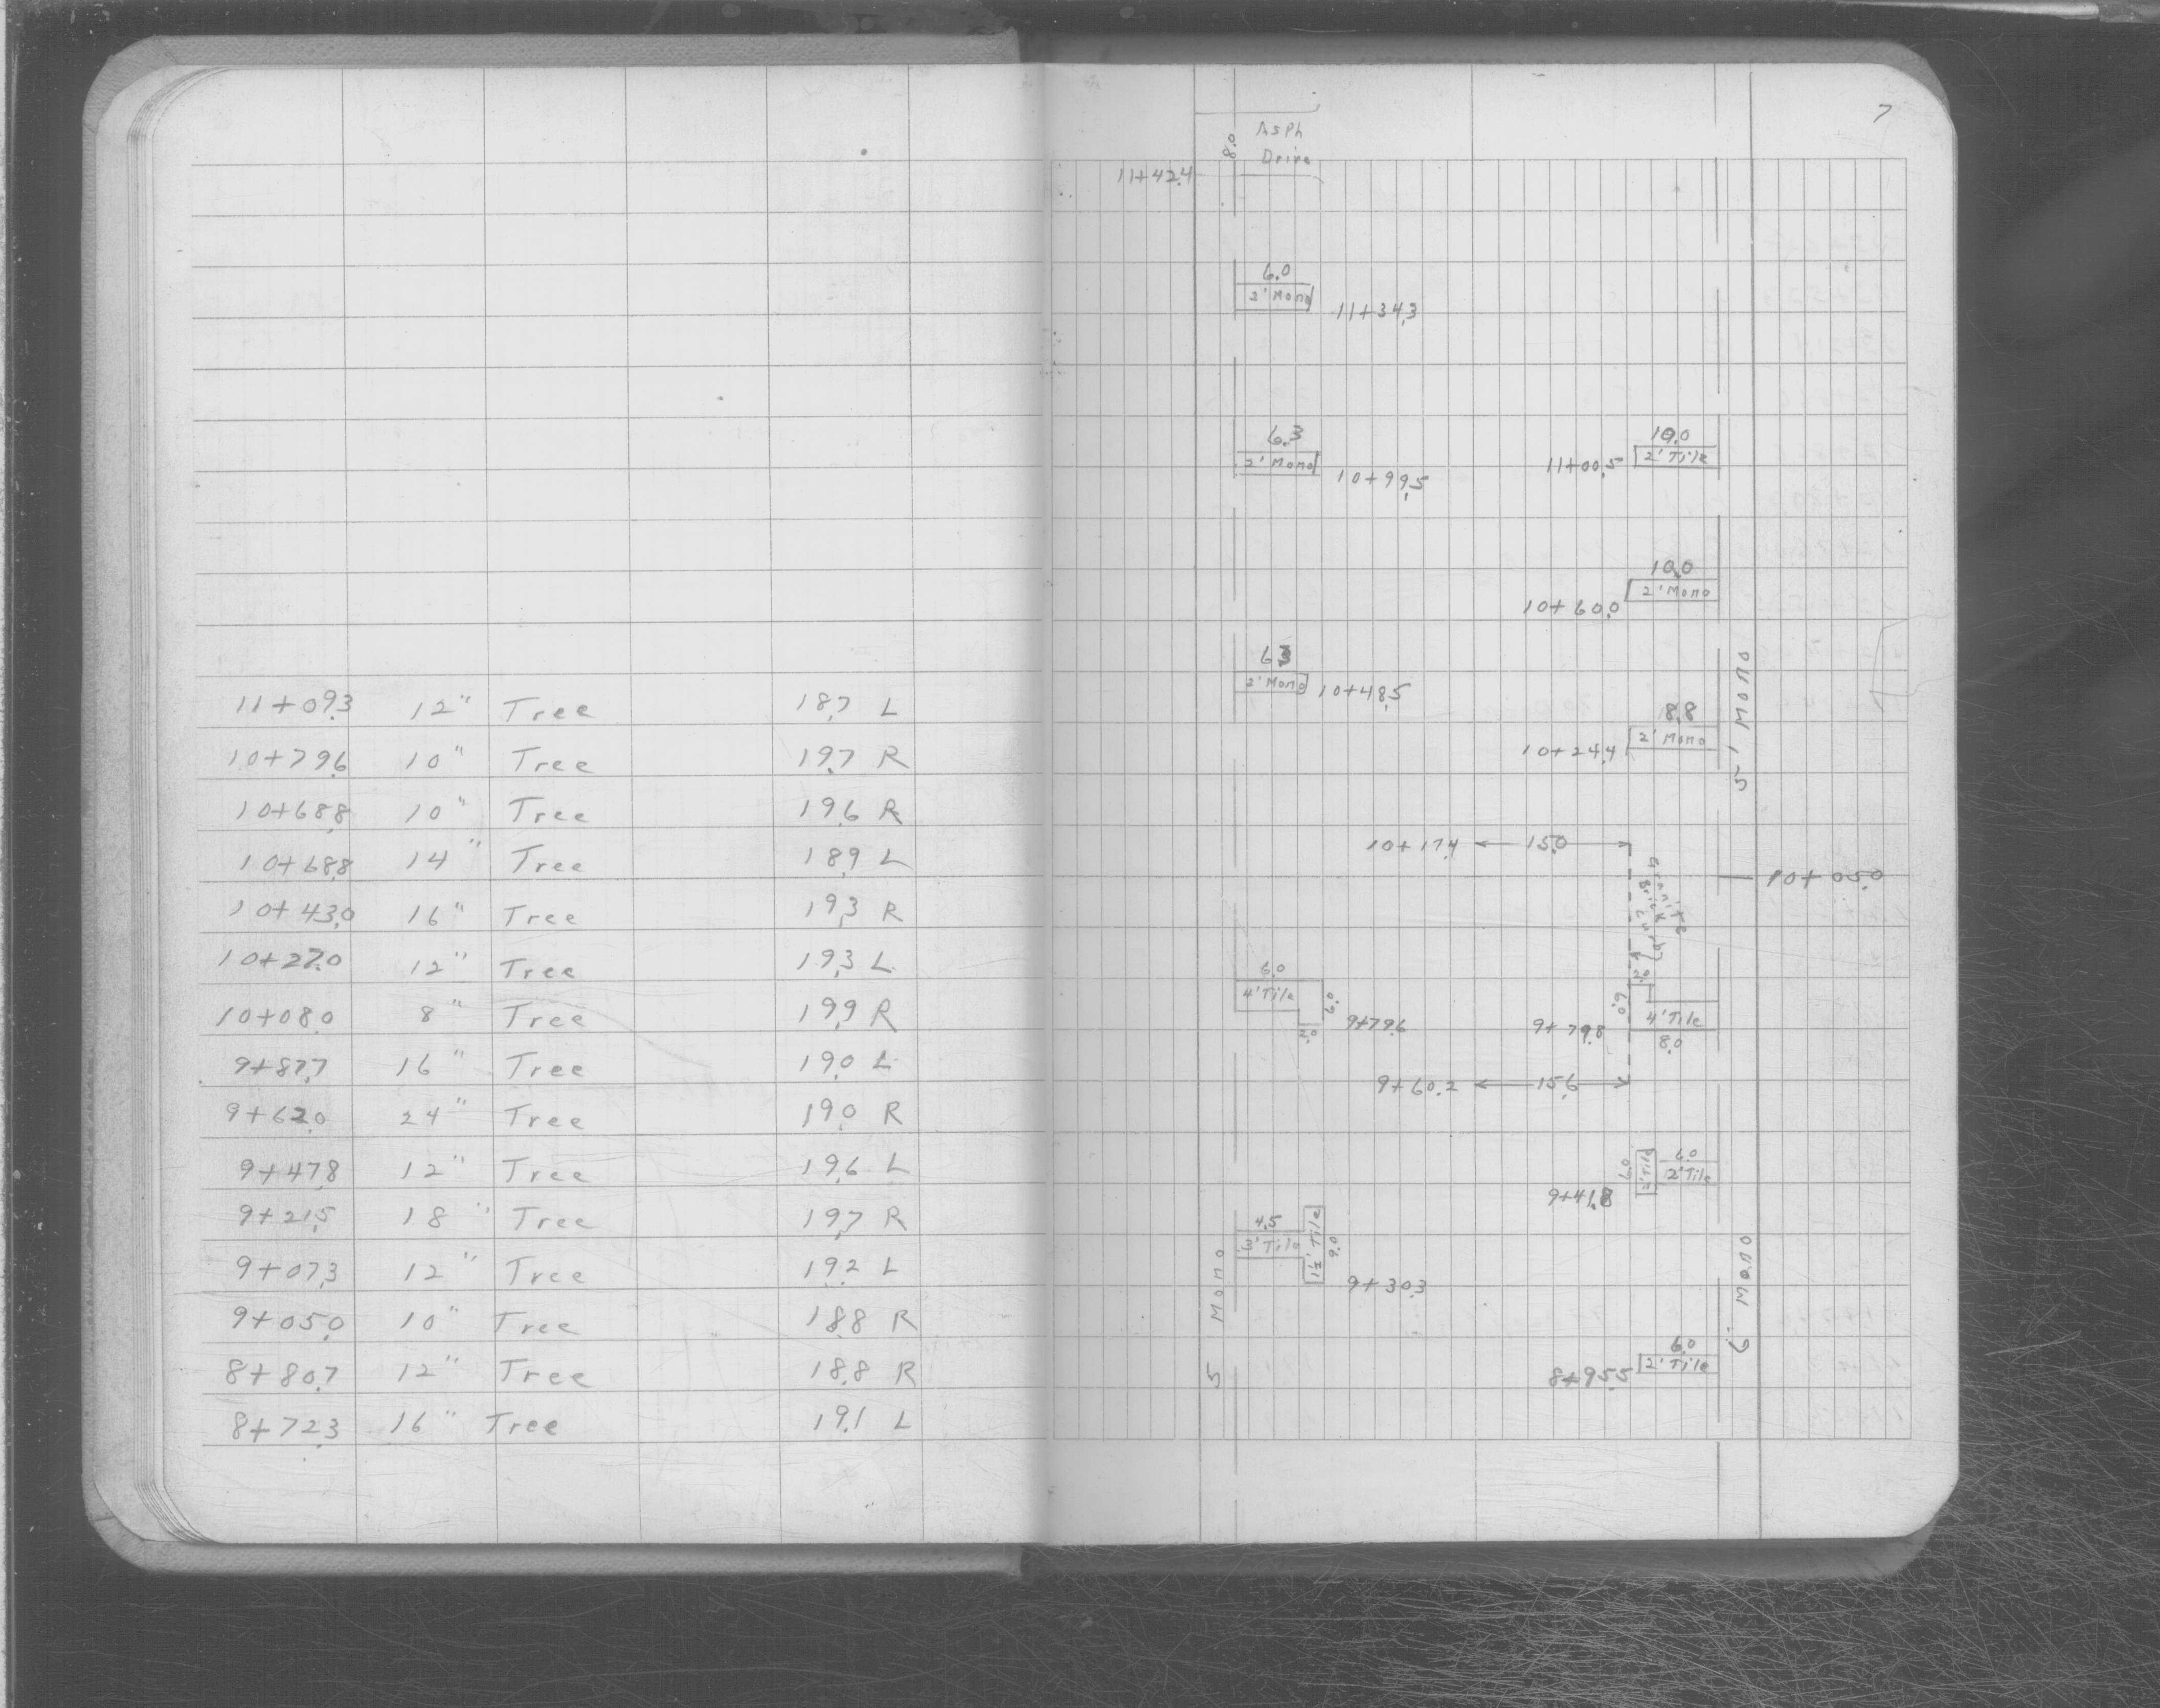 11+09.3 12" Tree 18.7 L
10+79.6 10" Tree 19.7 R
10+68.8 10" Tree 19.6 R
10+68.8 14" Tree 18.9 L
10+43.0 16" Tree 19.3 R
10+27.0 12" Tree 19.3 L
10+08.0 8" Tree 19.9 R
9+87.7 16" Tree 19.0 L
9+62.0 24" Tree 19.0 R
9+47.8 12" Tree 19.6 L
9+21.5 18" Tree 19.7 R
9+07.3 12" Tree 19.2 L
9+05.0 10" Tree 18.8 R
8+80.7 12" Tree 18.8 R
8+72.3 16" Tree 19.1 L
7
8.0 Asph
Drive
11+42.4
6.0
2' Mono
11+34.3
6.3
2' Mono
10+99.5
10.0
2' Tile
11+00.5
10.0
2' Mono
10+60.0
6.3
2' Mono
10+48.5
8.8
2' Mono
10+24.4
5' Mono
10+17.4 15.0
Granite
10+05.0
2.0
6.0
4' Tile
6.0
2.0
9+79.6
9+79.8
6.0
4' Tile
8.0
9+60.2 15.6
6.0
2' Tile
6.0
2' Tile
9+41.8
4.5
3' Tile
1½' Tile
9.0
9+30.3
5 Mono
6' Mono
6.0
2' Tile
8+95.5